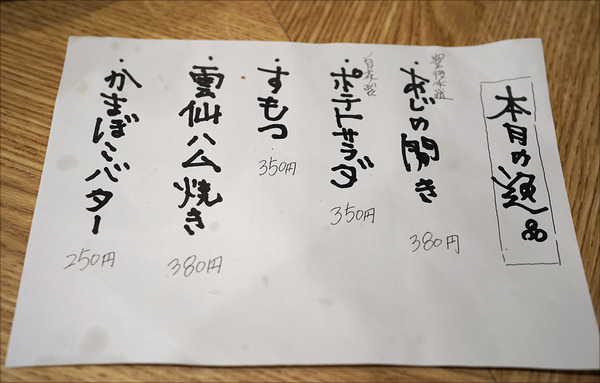 本日の逸品
豊後水道
・あじの開き 380円
自家製
・ポテトサラダ 350円
・すもつ 350円
・雲仙ハム焼き 380円
・かまぼこバター 250円